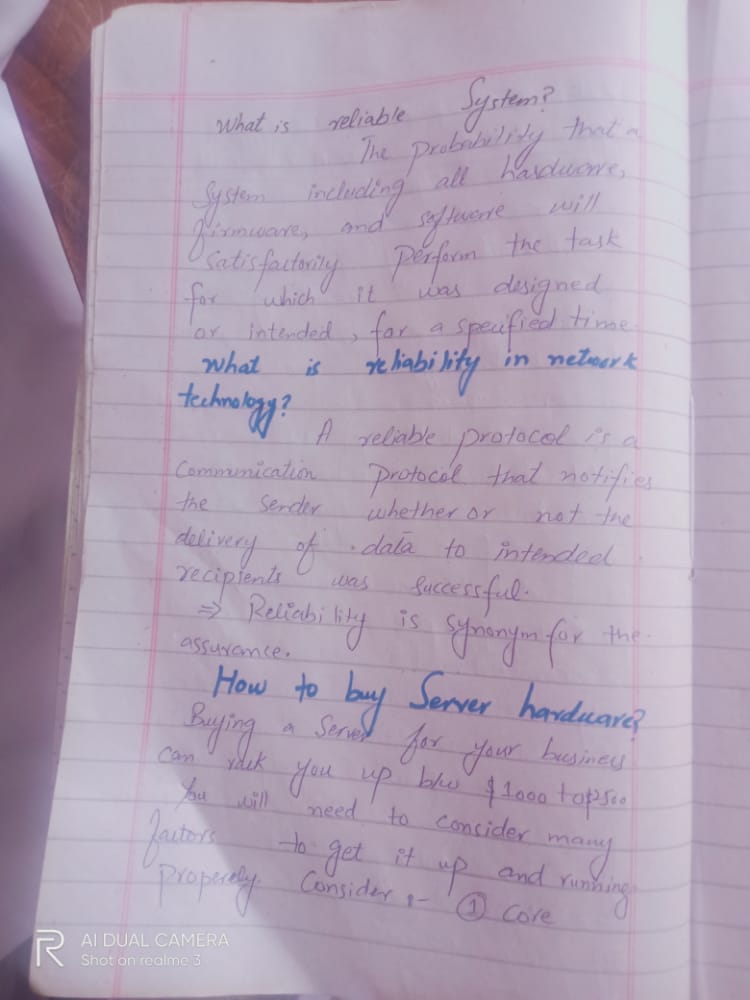 What is reliable System?
The Probability that a
System including all hardware,
firmware, and software will
Satisfactorily Perform the task
for which it was designed
or intended, for a specified time
What is reliability in network
technology?
A reliable protocol is a
Communication Protocol that notifies
the Sender whether or not the
delivery of data to intended
recipients was successful.
⇒ Reliability is synonym for the
assurance.
How to buy Server hardware?
Buying a Server for your business
can you up b/w $1000 to
You will need to consider many
factors to get it up and running
Properely Consider :- ① Core
AI DUAL CAMERA
Shot on realme 3